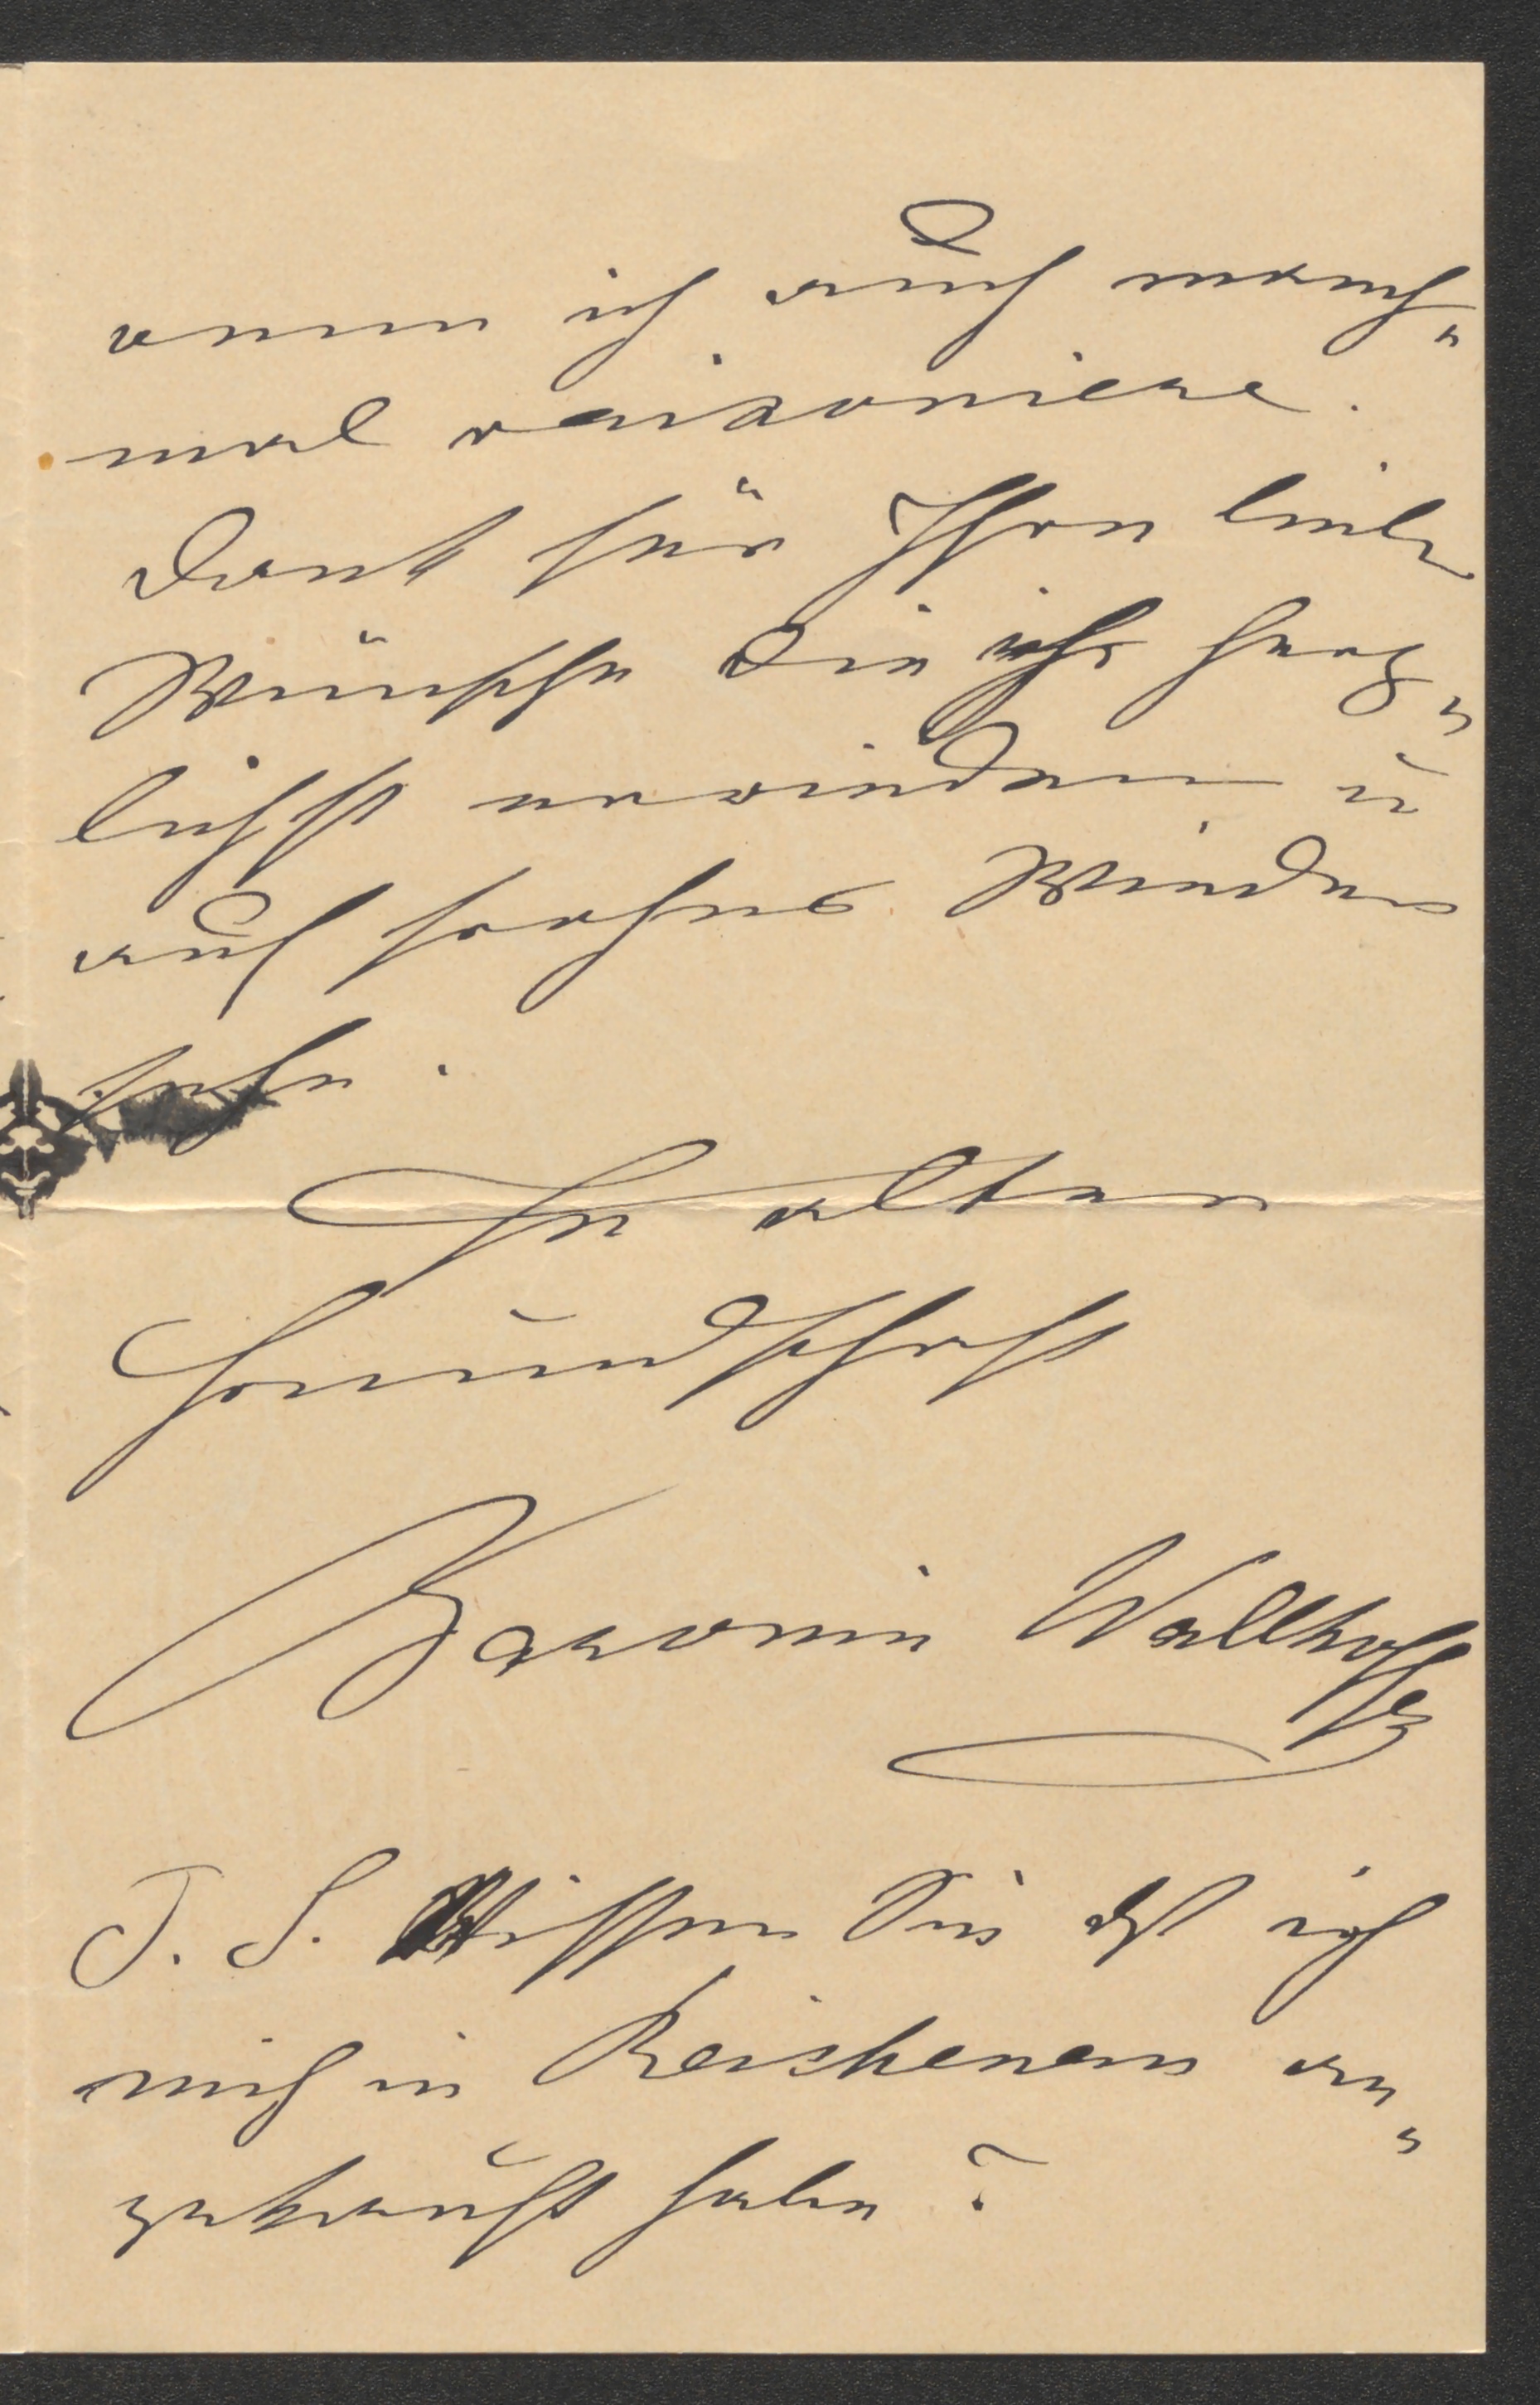 wenn ich auch manch„
mal raisoniere.
Dank für Ihre liebe
Wünsche die ich herz„
lichst erwiedere u
auf frohes Wieder
sehn.
In alter
Freundschaft
Baronin Wallhoffen
P. S. Wissen Sie dß ich
mich in Reichenau an„
gekauft habe?